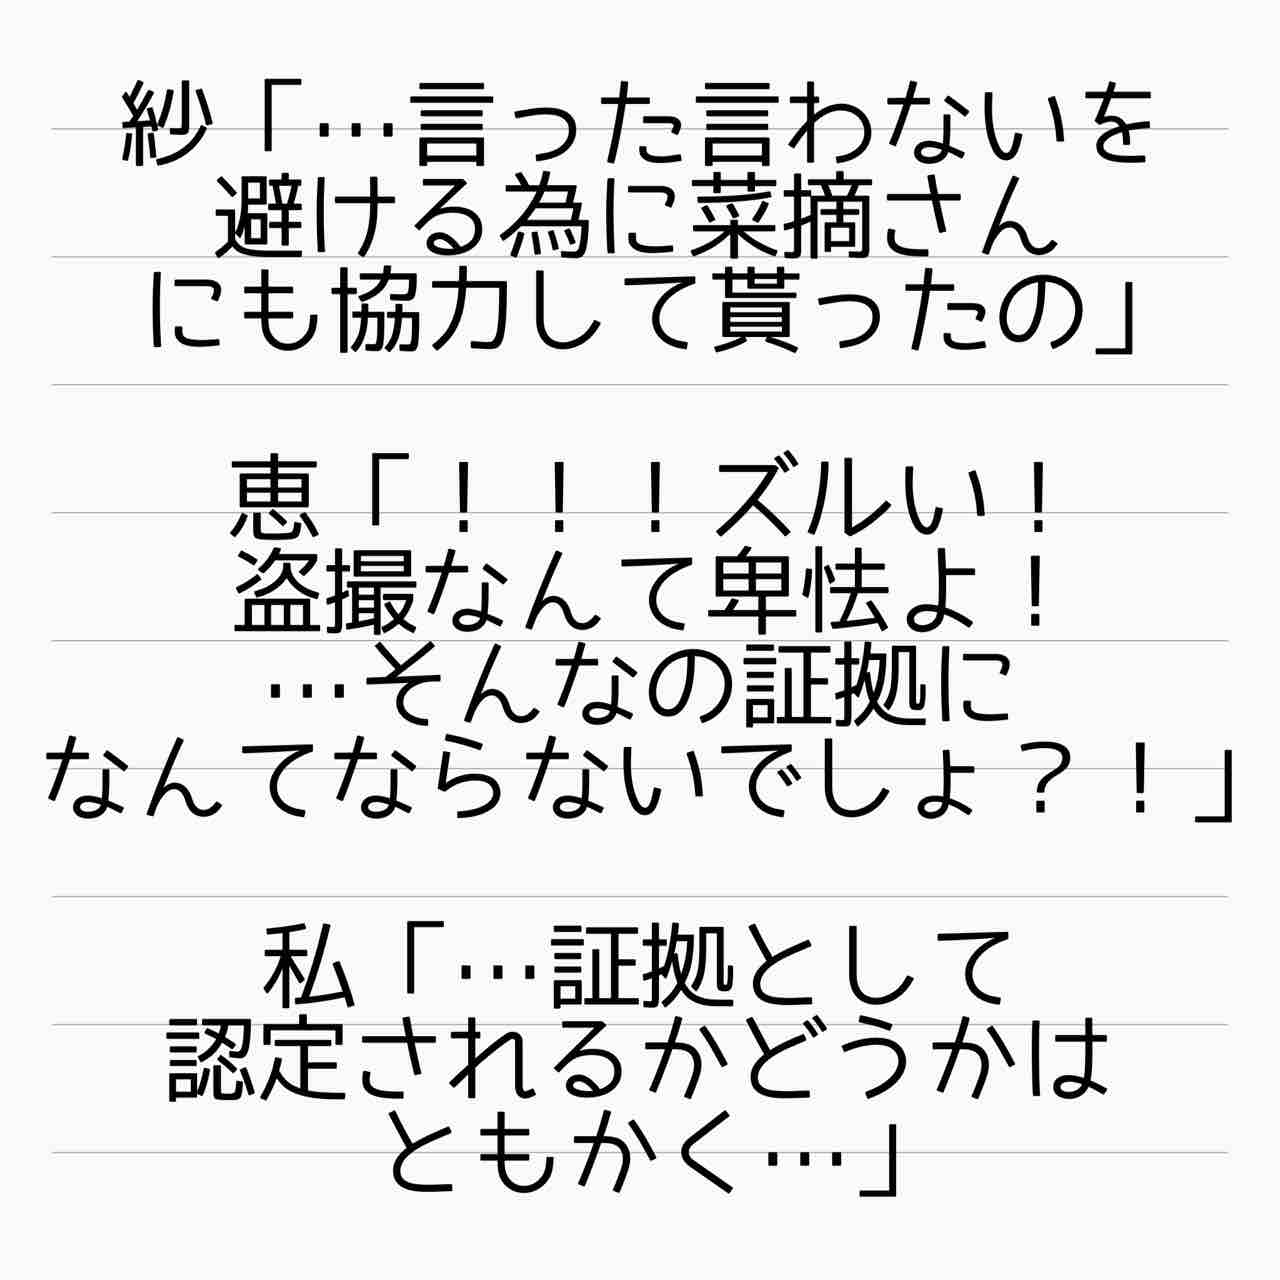 紗「…言った言わないを
避ける為に菜摘さん
にも協力して貰ったの」
恵「！！！ズルい！
盗撮なんて卑怯よ！
…そんなの証拠に
なんてならないでしょ？！」
私「…証拠として
認定されるかどうかは
ともかく…」